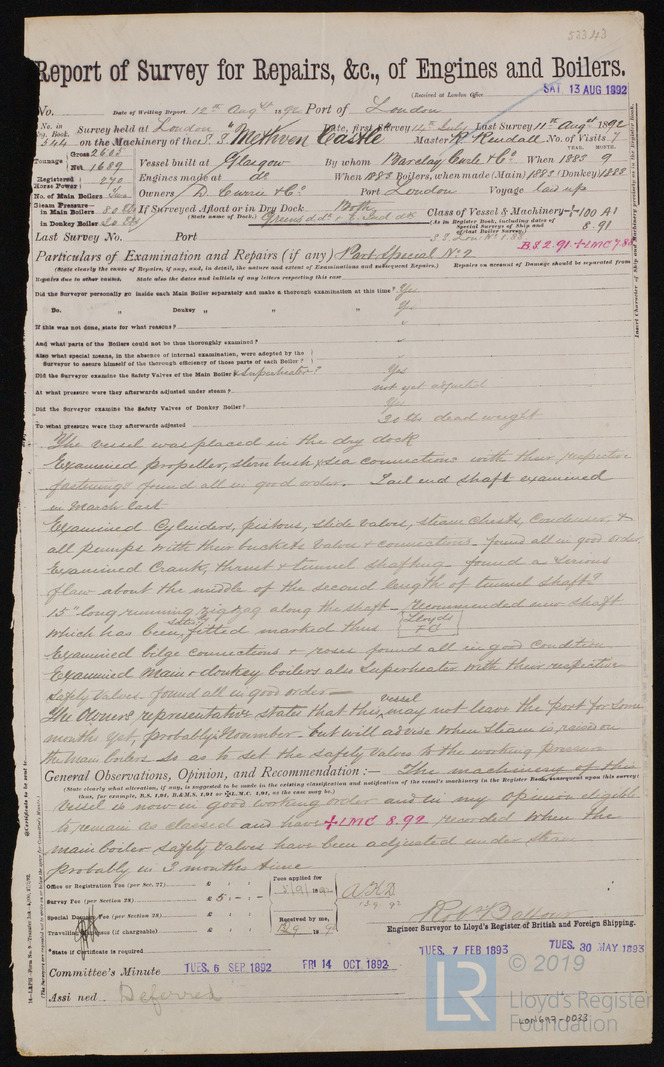 53343
Report of Survey for Repairs, &c., of Engines and Boilers.
(Received at London Office SAT. 13 AUG 1892
No. Date of Writing Report 12th Augst 1892 Port of London
No. in Reg. Book. Survey held at London Date, first Survey 14th July Last Survey 11th Augst 1892
344 on the Machinery of the S.S. Methven Castle Master R. Rendall No. of Visits 7
YEAR. MONTH.
Tonnage Gross 2663 Net 1689 Vessel built at Glasgow By whom Barclay Curle & Co. When 1883 9
Registered Horse Power 270 Engines made at do. When 1883 Boilers, when made (Main) 1883 (Donkey) 1888
No. of Main Boilers Two Owners D. Currie & Co. Port London Voyage laid up
Steam Pressure in Main Boilers 80 lbs If Surveyed Afloat or in Dry Dock Both Class of Vessel & Machinery ✠100 A1
in Donkey Boiler 30 lbs (State name of Dock.) Greens d.dk & E. Ind dk (As in Register Book, including dates of Special Surveys of Ship and of last Boiler Survey.) 8.91
Last Survey No. Port S.S. Lon. No 1.88 BS 2.91 ✠LMC 7.88
Particulars of Examination and Repairs (if any) Part Special No. 2
(State clearly the cause of Repairs, if any, and, in detail, the nature and extent of Examinations and subsequent Repairs.) Repairs on account of Damage should be separated from
Repairs due to other causes. State also the dates and initials of any letters respecting this case
Did the Surveyor personally go inside each Main Boiler separately and make a thorough examination at this time? Yes
Do. „ Donkey „ „ „ Yes
If this was not done, state for what reasons? "
And what parts of the Boilers could not be thus thoroughly examined? "
Also what special means, in the absence of internal examination, were adopted by the Surveyor to assure himself of the thorough efficiency of those parts of each Boiler? "
Did the Surveyor examine the Safety Valves of the Main Boiler & Superheater? Yes
At what pressure were they afterwards adjusted under steam? not yet adjusted
Did the Surveyor examine the Safety Valves of Donkey Boiler? Yes
To what pressure were they afterwards adjusted 30 lbs dead weight
The vessel was placed in the dry dock
Examined propeller, stern bush & sea connections with their respective
fastenings found all in good order. Tail end shaft examined
in March last
Examined Cylinders, pistons, slide valves, steam chests, Condenser, &
all pumps with their buckets valves & connections found all in good order,
Examined Crank, thrust & tunnel shafting found a serious
flaw about the middle of the second length of tunnel shaft
15" long running zig zag along the shaft - recommended new shaft
which has been fitted marked thus Lloyds
Examined bilge connections & roses found all in good condition
Examined Main & donkey boilers also Superheater with their respective
safety Valves found all in good order
The Owners representative states that this vessel may not leave the port for some
months yet, probably November - but will advise when Steam is raised on
the main boilers so as to set the safety valves to the working pressure
General Observations, Opinion, and Recommendation :— The machinery of this
(State clearly what alteration, if any, is suggested to be made in the existing classification and notification of the vessel's machinery in the Register Book, consequent upon this survey;
thus, for example, B.S. 1.91, B.&M.S. 1.91 or ✠L.M.C. 1.91, as the case may be.)
Vessel is now in good working order and in my opinion eligible
to remain as classed and have ✠LMC 8.92 recorded when the
main boiler safety valves have been adjusted under steam
probably in 3 months time
Office or Registration Fee (per Sec. 27) £ Fees applied for
Survey Fee (per Section 28) £ 5 : - : -
Special Damage Fee (per Section 28) £ Received by me,
Travelling Expenses (if chargeable) £
Robt Balfour
Engineer Surveyor to Lloyd's Register of British and Foreign Shipping.
*State if Certificate is required
TUES. 7 FEB 1893 TUES. 30 MAY 1893
Committee's Minute TUES. 6 SEP 1892 FRI 14 OCT 1892
Assigned Deferred
© 2019
LR Lloyd's Register Foundation
LON697-0033